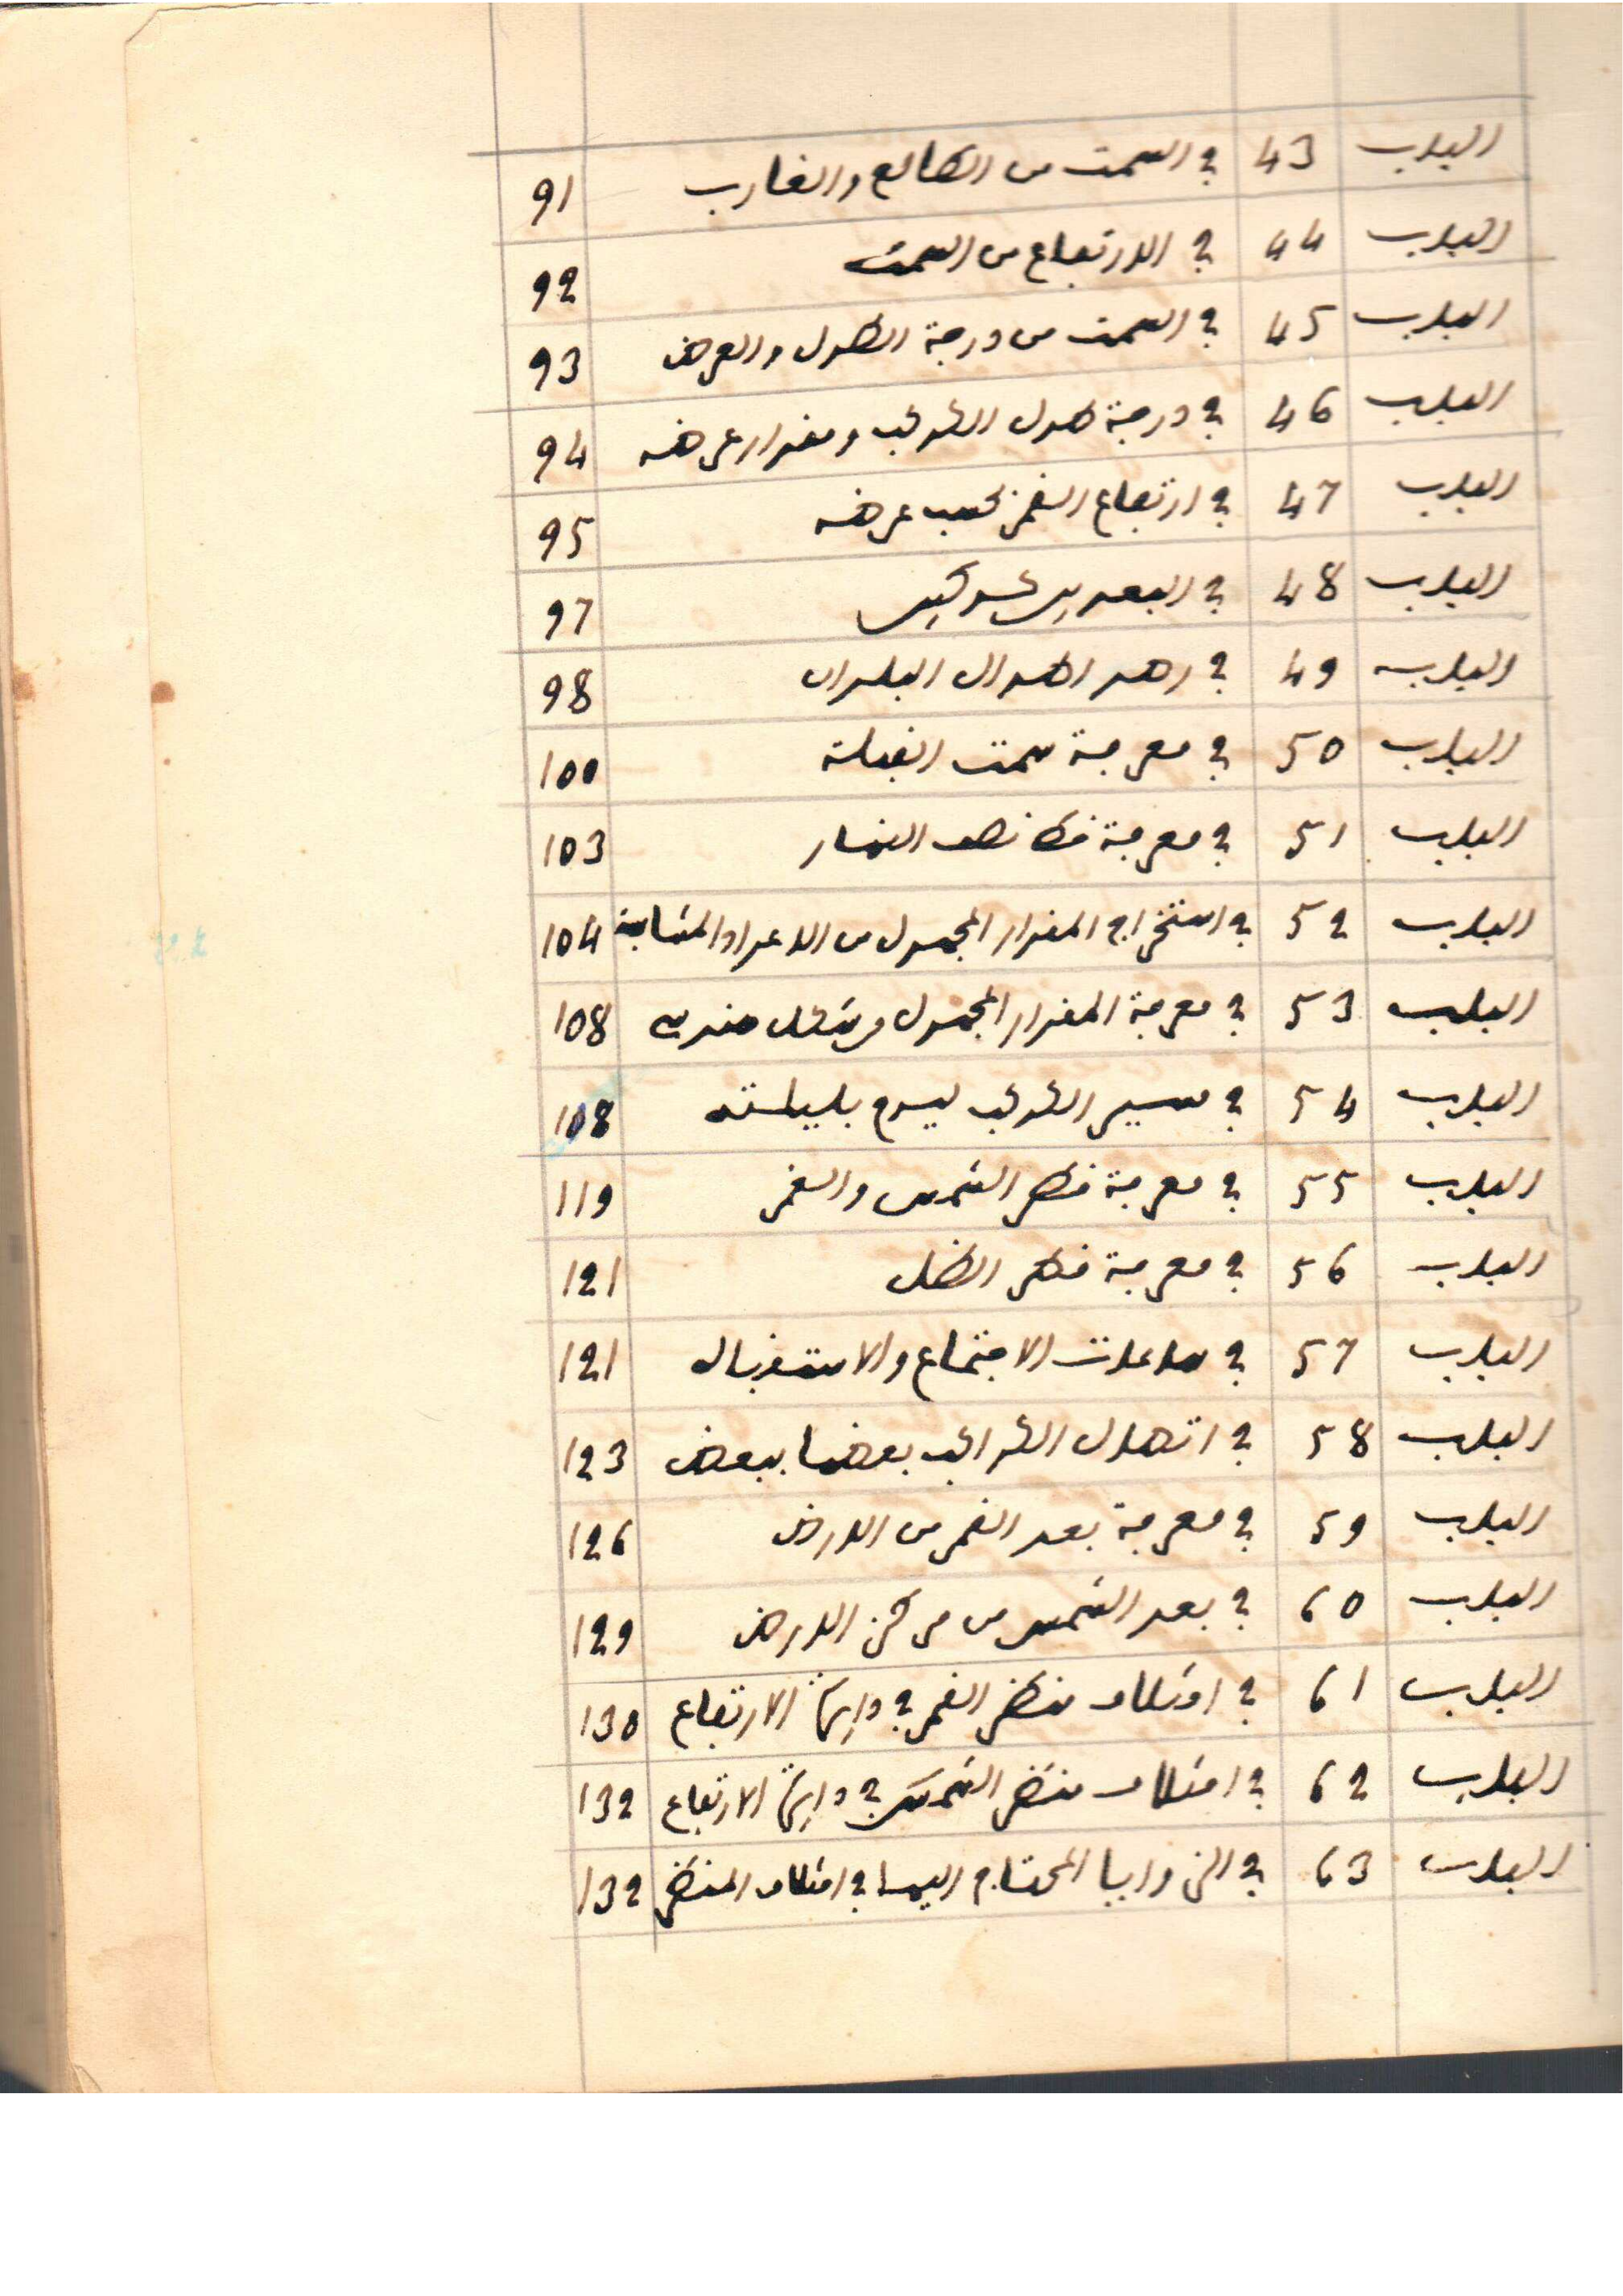 الباب 43 في السمت من الطالع والغارب 91
الباب 44 في الارتفاع من السمت 92
الباب 45 في السمت من درجة الطول والعرض 93
الباب 46 في درجة طول الكوكب ومقدار عرضه 94
الباب 47 في ارتفاع القمر بحسب عرضه 95
الباب 48 في البعد بين كوكبين 97
الباب 49 في رصد اطوال البلدان 98
الباب 50 في معرفة سمت القبلة 100
الباب 51 في معرفة خط نصف النهار 103
الباب 52 في استخراج المقدار المجهول من الاعداد المتناسبة 104
الباب 53 في معرفة المقدار المجهول من شكل هندسي 108
الباب 54 في مسير الكوكب ليوم بليلته 108
الباب 55 في معرفة قطر الشمس والقمر 119
الباب 56 في معرفة قطر الظل 121
الباب 57 في ساعات الاجتماع والاستقبال 121
الباب 58 في اتصال الكواكب بعضها ببعض 123
الباب 59 في معرفة بعد القمر من الارض 126
الباب 60 في بعد الشمس من مركز الارض 129
الباب 61 في اختلاف منظر القمر في دائرة الارتفاع 130
الباب 62 في اختلاف منظر الشمس في دائرة الارتفاع 132
الباب 63 في الزوايا المحتاج اليها في اختلاف المنظر 132